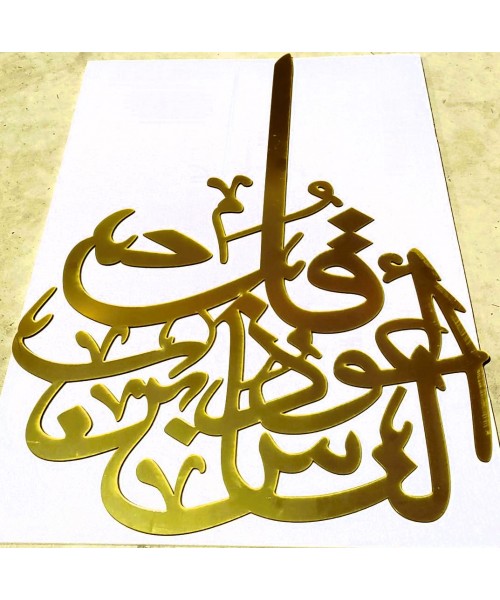 قل أعوذ برب الناس